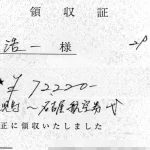 領収証
浩一 様
★ ¥72,220-
〜名古屋航空券代
正に領収いたしました